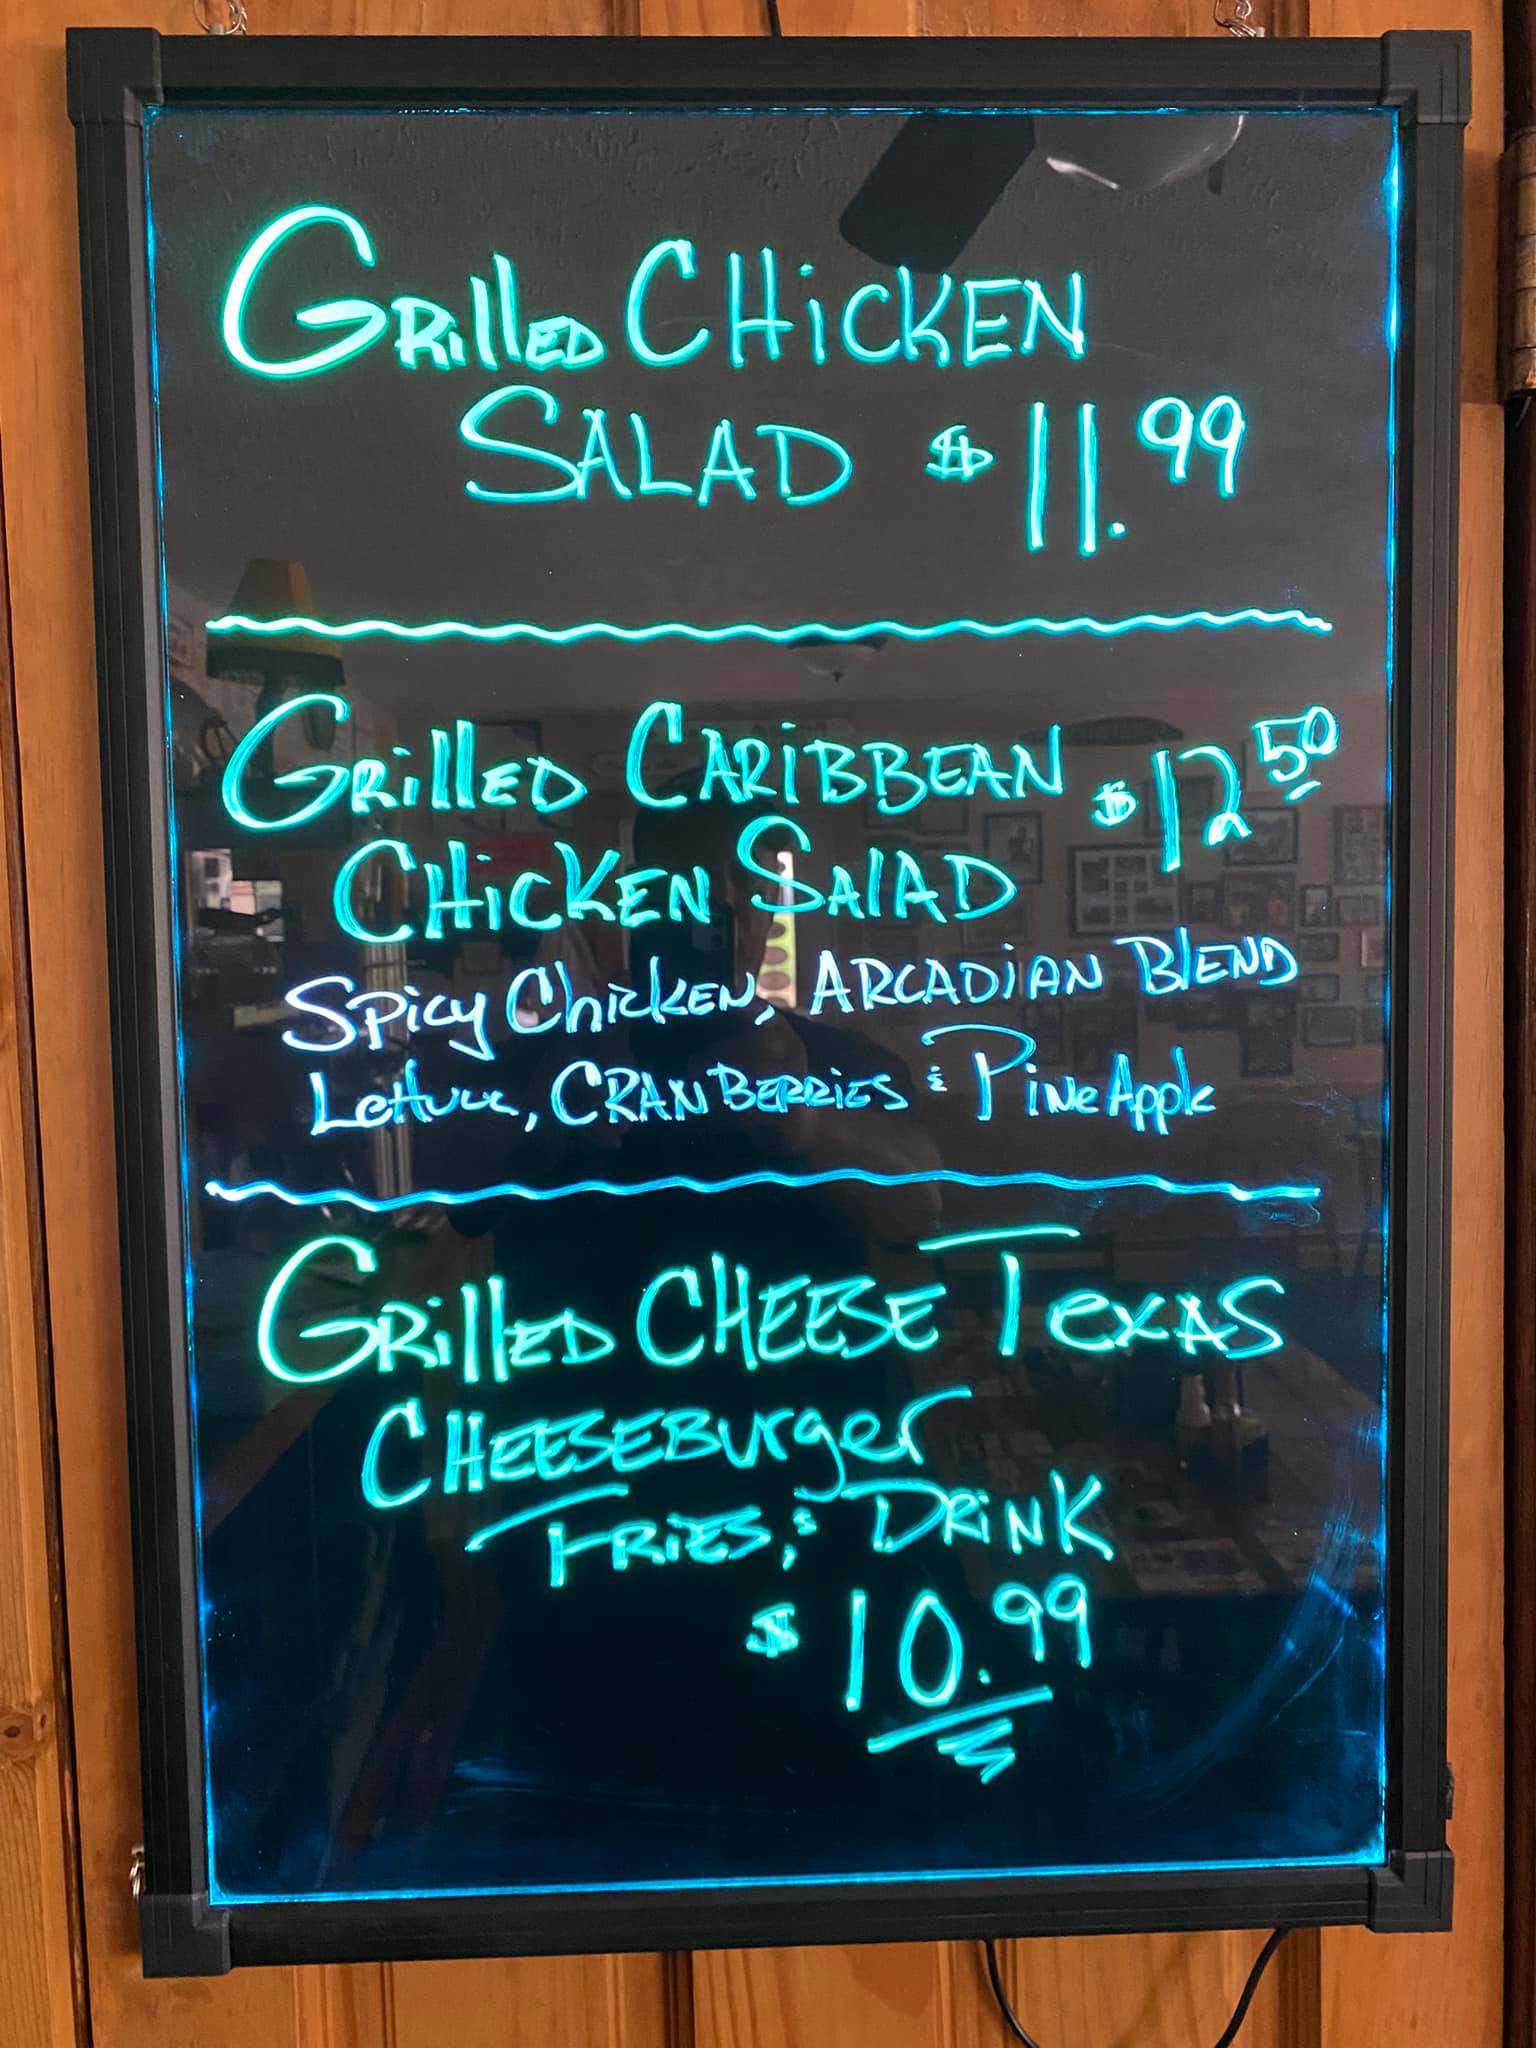 Grilled Chicken
Salad $11.99
Grilled Caribbean $12 50
Chicken Salad
Spicy Chicken, Arcadian Blend
Lettuce, Cranberries & PineApple
Grilled Cheese Texas
Cheeseburger
Fries, & Drink
$10.99